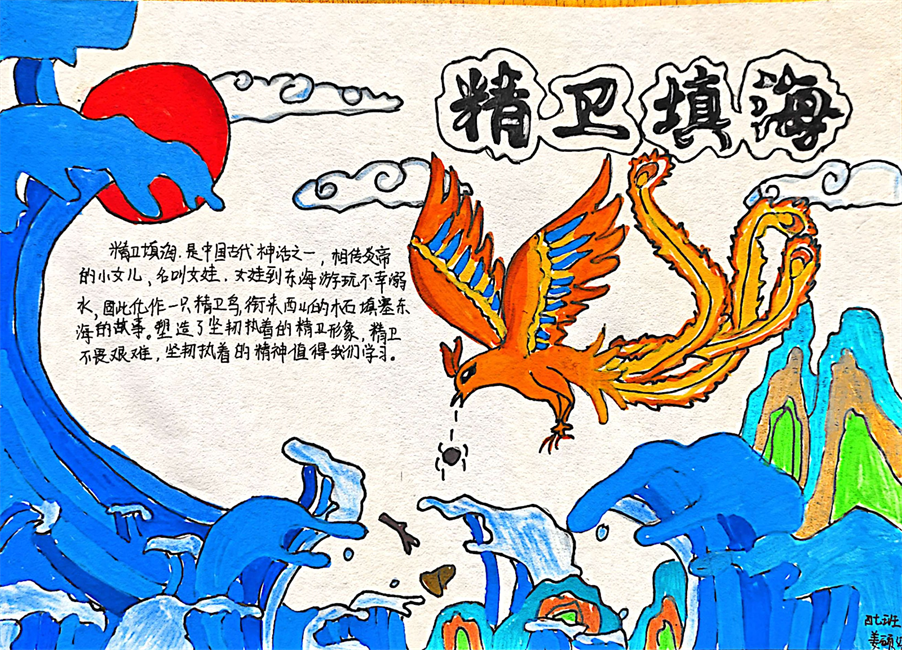 精卫填海
精卫填海是中国古代神话之一，相传炎帝
的小女儿，名叫女娃．女娃到东海游玩不幸溺
水，因此化作一只精卫鸟，衔来西山的木石填塞东
海的故事。塑造了坚韧执着的精卫形象，精卫
不畏艰难，坚韧执着的精神值得我们学习。
四七班
姜硕